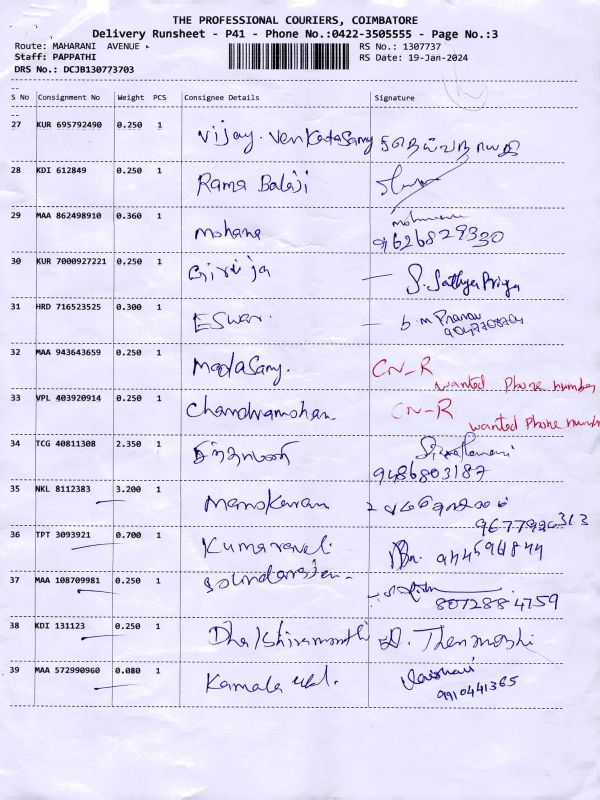 THE PROFESSIONAL COURIERS, COIMBATORE
Delivery Runsheet - P41 - Phone No.:0422-3505555 - Page No.:3
Route: MAHARANI AVENUE RS No.: 1307737
Staff: PAPPATHI RS Date: 19-Jan-2024
DRS No.: DCJB130773703
S No Consignment No Weight PCS Consignee Details Signature
27 KUR 695792490 0.250 1 Vijay. Venkatasamy
28 KDI 612849 0.250 1 Rama Balaji
29 MAA 862498910 0.360 1 Mohana 9626829330
30 KUR 7000927221 0.250 1 Girija S. Sathya Priya
31 HRD 716523525 0.300 1 Eswar.
32 MAA 943643659 0.250 1 Madasamy. CN-R
wanted Phone number
33 VPL 403920914 0.250 1 Chandramohan. CN-R
wanted Phone numb
34 TCG 40811308 2.350 1
9486803187
35 NKL 8112383 3.200 1 Manokaran
36 TPT 3093921 0.700 1 Kumaravel.
37 MAA 108709981 0.250 1 Soundarajan
8072884759
38 KDI 131123 0.250 1
39 MAA 572990960 0.080 1 Kamala
9910441365